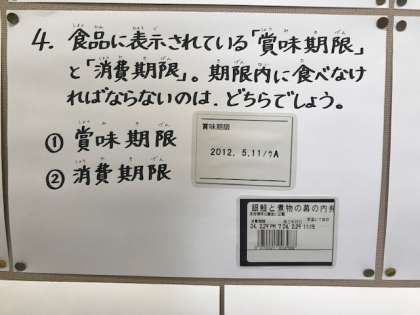 4. 食品に表示されている「賞味期限」
と「消費期限」。期限内に食べなけ
ればならないのは、どちらでしょう。
① 賞味期限
② 消費期限
賞味期限
2012. 5.11/ウA
銀鮭と煮物の幕の内弁
消費期限